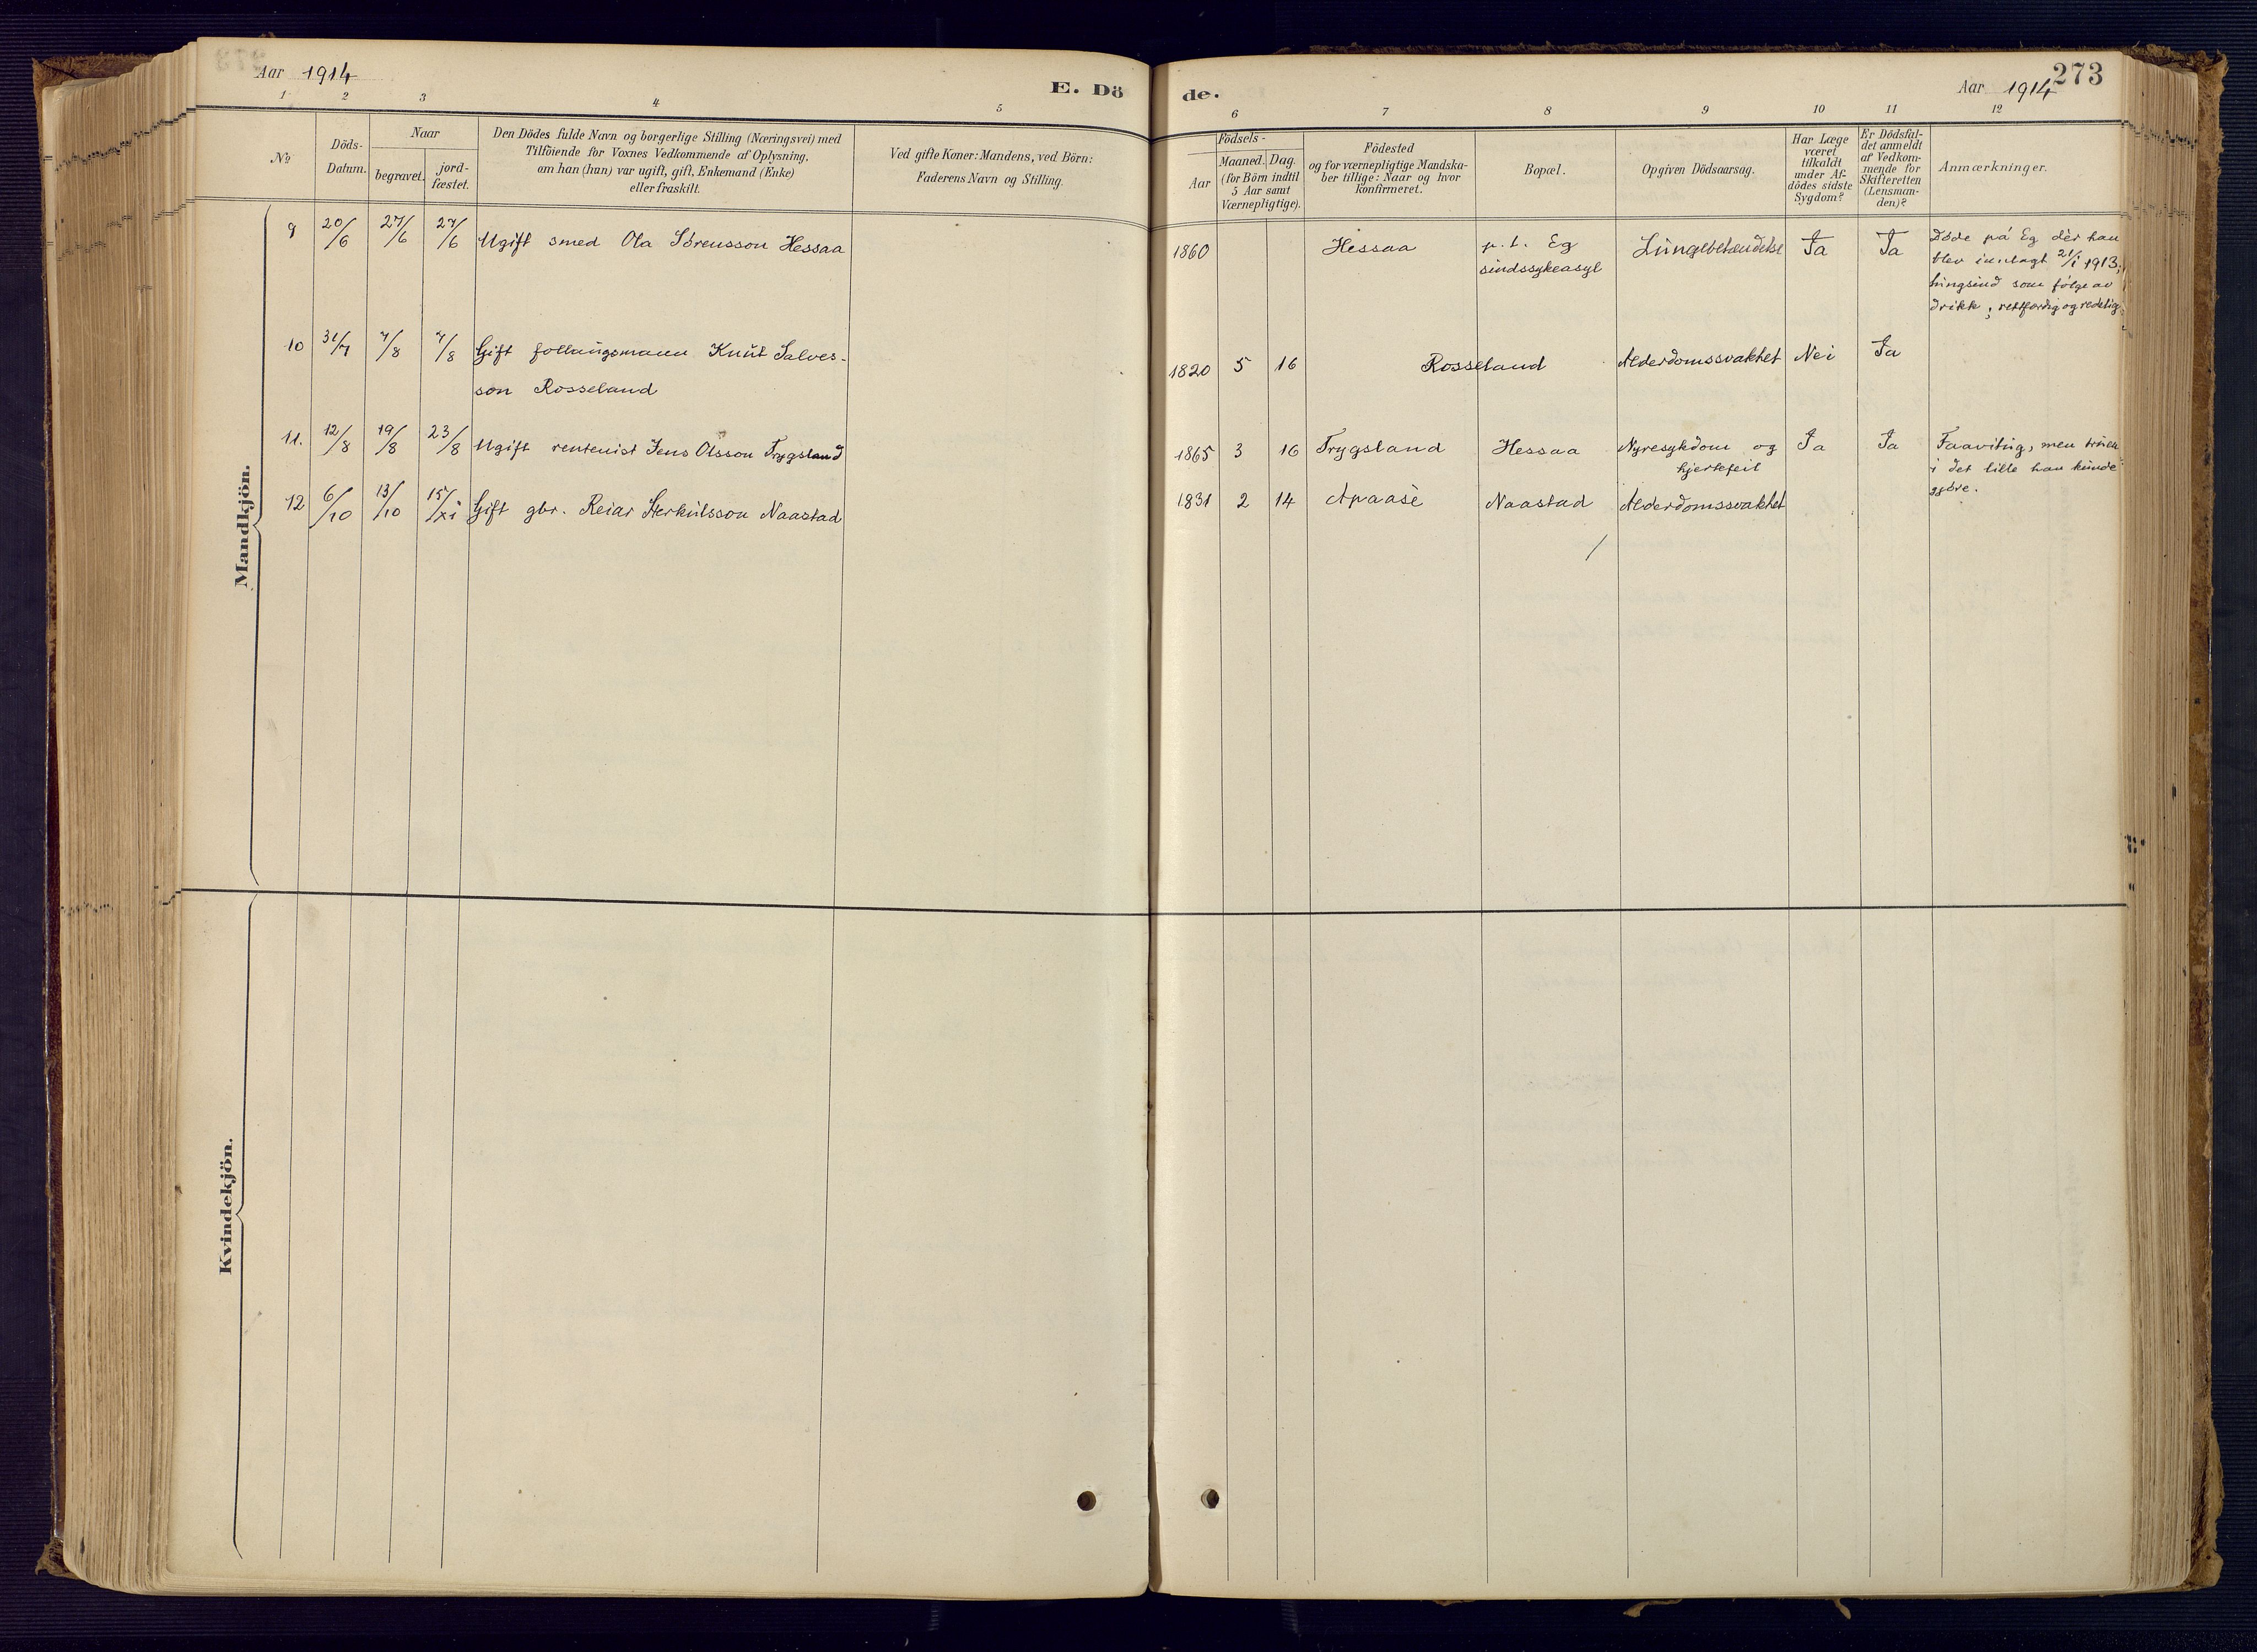 Aar 1914
E. Dö
de.
Aar 1914
273
1 2 3 4 5 6 7 8 9 10 11 12
№
Döds-
Datum.
Naar
begravet.
jord-
fæstet.
Den Dödes fulde Navn og borgerlige Stilling (Næringsvei) med
Tilföiende for Voxnes Vedkommende af Oplysning,
om han (hun) var ugift, gift, Enkemand (Enke)
eller fraskilt.
Ved gifte Koner: Mandens, ved Börn:
Faderens Navn og Stilling.
Födsels-
Aar
Maaned. Dag.
(for Börn indtil
5 Aar samt
Værnepligtige).
Födested
og for værnepligtige Mandska-
ber tillige: Naar og hvor
konfirmeret.
Bopæl.
Opgiven Dödsaarsag.
Har Læge
været
tilkaldt
under Af-
dödes sidste
Sygdom?
Er Dödsfal-
det anmeldt
af Vedkom-
mende for
Skifteretten
(Lensman-
den)?
Anmærkninger.
Mandkjön.
9 20/6 27/6 27/6 Ugift smed Ola Sörensson Hessaa 1860 Hessaa p.t. Eg Lungebetændelse Ja Ja
sindssykeasyl
Döde på Eg dèr han
blev innlagt 21/1 1913;
hingsind som følge av
drikk; rettferdig og redelig
10 31/7 7/8 7/8 Gift follaugsmann Knut Salves-
son Rosseland
1820 5 16 Rosseland Alderdomssvakhet Nei Ja
11. 12/8 19/8 23/8 Ugift rentenist Jens Olsson Trygsland 1865 3 16 Trygsland Hessaa Nyresykdom og Ja Ja
hjertefeil
Faavitug, men
i det lille han kunde
gjöre.
12 6/10 13/10 15/xi Gift gbr. Reiar Herkulsson Naastad 1831 2 14 Apaasè Naastad Alderdomssvakhet
Kvindekjön.